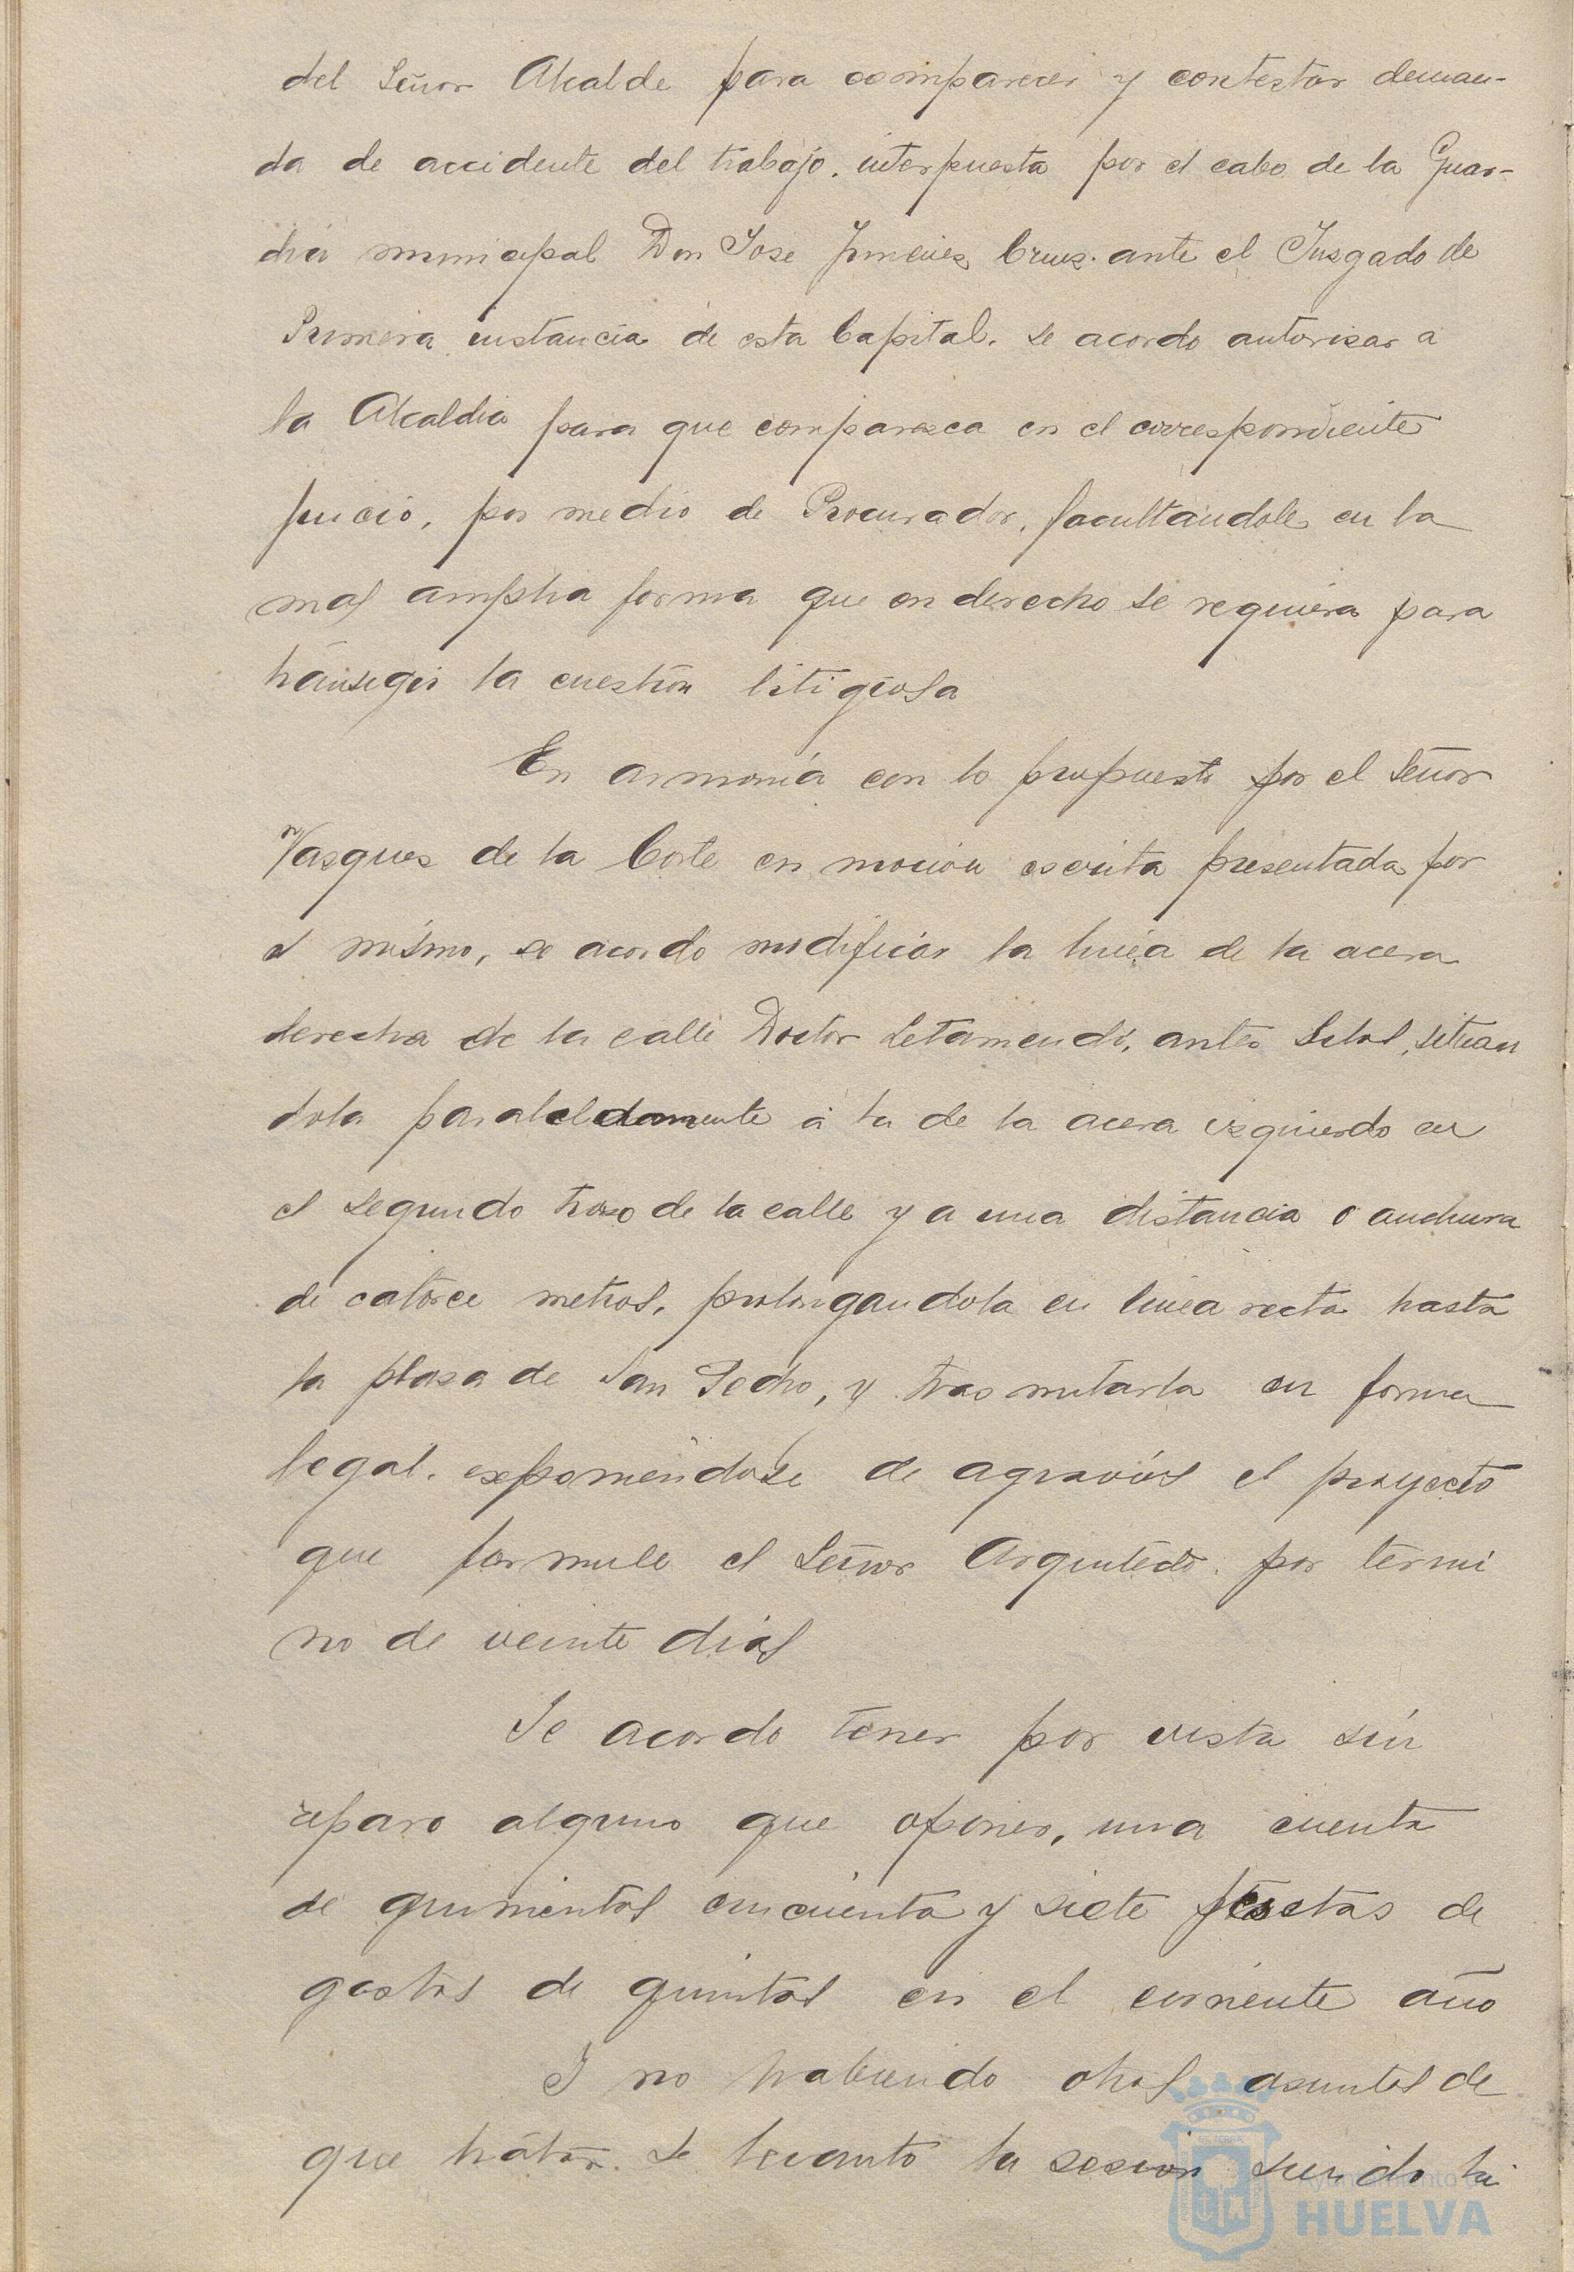 del Señor Alcalde para comparecer y contestar deman-
da de accidente del trabajo. interpuesta por el cabo de la Guar-
dia municipal Don Jose Jimenez Cruz. ante el Jusgado de
Primera instancia de esta Capital. se acordo autorisar a
la Alcaldia para que comparesca en el correspondiente
juicio, por medio de Procurador, facultandole en la
mas amplia forma que en derecho se requiera para
transigir la cuestion litigiosa
En armonia con lo propuesto por el Señor
Vasques de la Corte en mocion escrita presentada por
el mismo, se acordo modificar la linea de la acera
derecha de la calle Doctor Letamendi, antes Silos, situan
dola paraleldamente a la de la acera izquierdo en
el segundo troso de la calle y a una distancia o anchura
de catorce metros, prolongandola en linea recta hasta
la plasa de San Pedro, y tras mitarla en forma
legal. exponiendose de agravios el proyecto
que formule el Señor Arquitecto. por termi
no de veinte dias
Se acordo tener por vista sin
reparo alguno que oponer, una cuenta
de quinientas cincuenta y siete pesetas de
gastos de quintas en el corriente año
Y no habiendo otros asuntos de
que tratar. se levanto la sesion siendo la
Ayuntamiento de
HUELVA